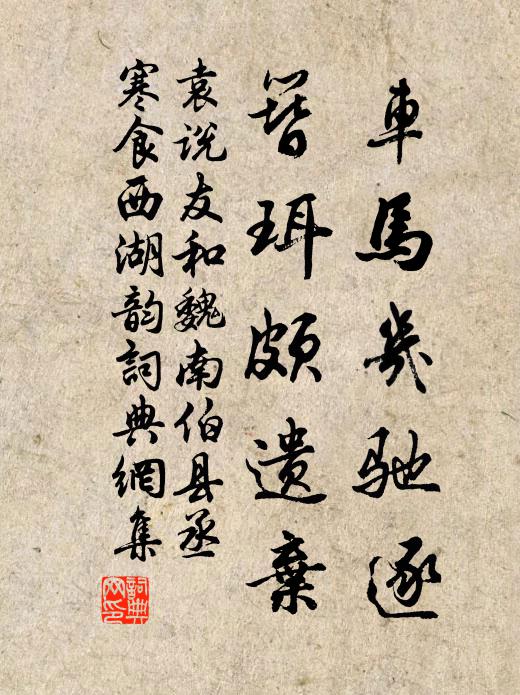 車馬幾馳逐
簪珥頗遺棄
袁说友和魏南伯县丞
寒食西湖韵詞典網集
詞典網印